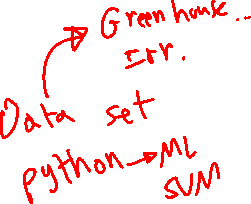 Green house..
Irr.
Data set
python → ML
SVM